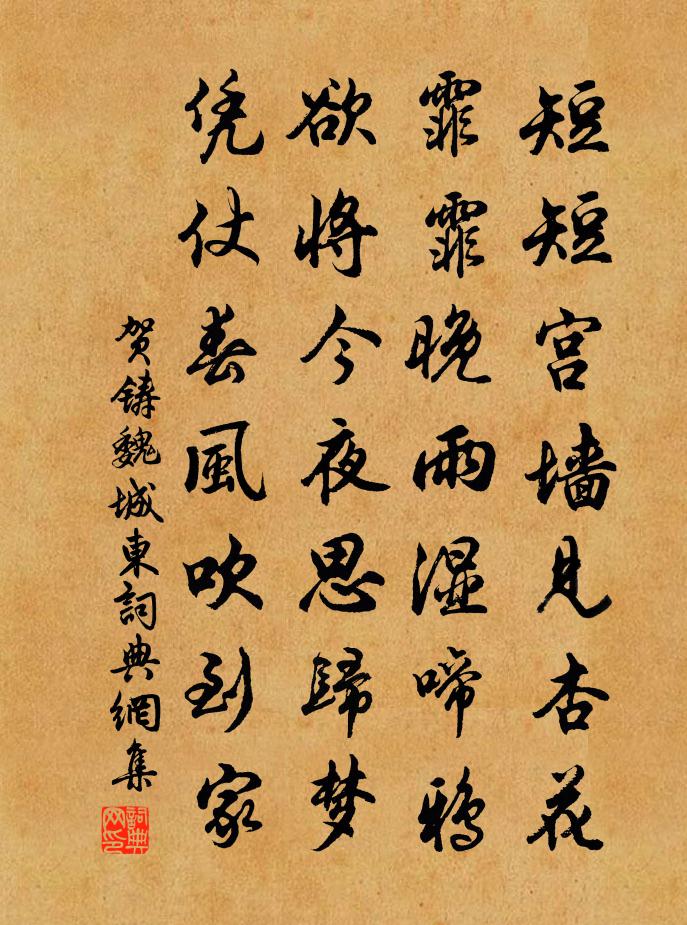 短短宫墙見杏花
霏霏晚雨湿啼鴉
欲将今夜思歸梦
凭仗春風吹到家
贺鋳魏城東詞典網集
詞典网印